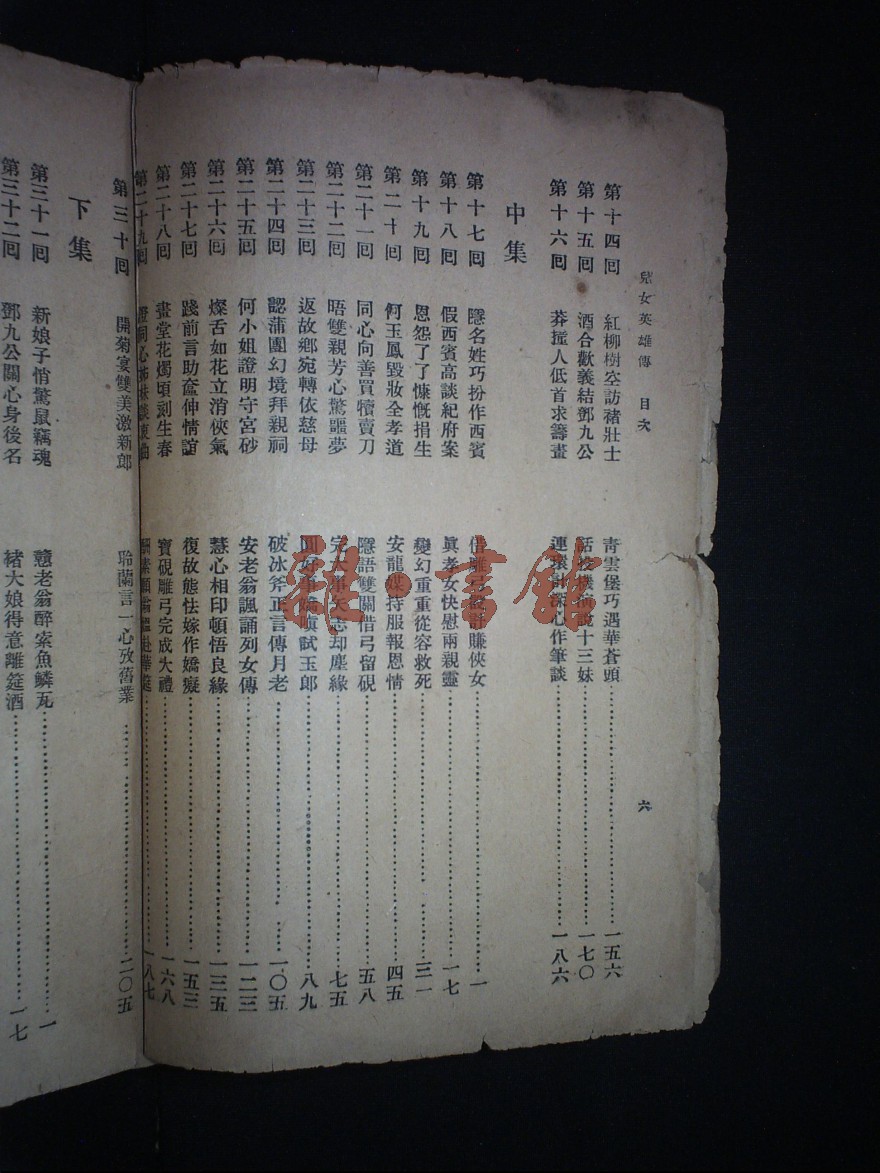 兒女英雄傳 目次 六
第十四回 紅柳樹空訪褚壯士 靑雲堡巧遇華蒼頭 一五六
第十五回 酒合歡義結鄧九公 話 說十三妹 一七〇
第十六回 莽撞人低首求籌畫 連環計深心作筆談 一八六
中集
第十七回 隱名姓巧扮作西賓 借雕弓設計賺俠女 一
第十八回 假西賓高談紀府案 眞孝女快慰兩親靈 一七
第十九回 恩怨了了慷慨捐生 變幻重重從容救死 三一
第二十回 何玉鳳毀妝全孝道 安龍媒持服報恩情 四五
第二十一回 同心向善買犢賣刀 隱語雙關借弓留硯 五八
第二十二回 晤雙親芳心驚噩夢 完大 矢志却塵緣 七五
第二十三回 返故鄉宛轉依慈母 圓好事嬌嗔試玉郎 八九
第二十四回 認蒲團幻境拜親祠 破冰斧正言傳月老 一〇五
第二十五回 何小姐證明守宮砂 安老翁諷誦列女傳 一二三
第二十六回 燦舌如花立消俠氣 慧心相印頓悟良緣 一三五
第二十七回 踐前言助奩伸情誼 復故態怯嫁作嬌癡 一五三
第二十八回 畫堂花燭頃刻生春 寶硯雕弓完成大禮 一六八
第二十九回 證同心姊妹談衷曲 酬素願翁媼赴華筵 一八七
第三十回 開菊宴雙美激新郎 聆蘭言一心攻舊業 二〇五
下集
第三十一回 新娘子悄驚鼠竊魂 戇老翁醉索魚鱗瓦 一
第三十二回 鄧九公關心身後名 褚大娘得意離筵酒 一七
雜·書館